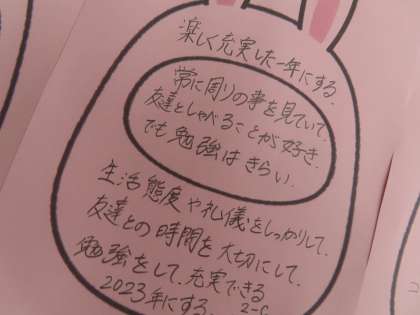 楽しく充実した一年にする.
常に周りの事を見ていて.
友達としゃべることが好き.
でも勉強はきらい.
生活態度や礼儀をしっかりして.
友達との時間を大切にして.
勉強をして.充実できる
2023年にする.